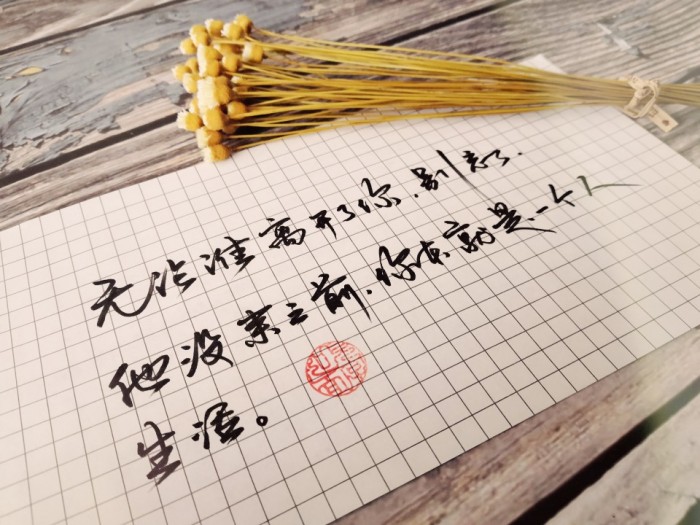 无论谁离开了你,别忘了,
他没来之前,你本就是一个人
生活。